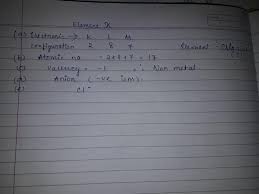 Element X
(a) Electronic → K L M
configuration 2 8 7 Element -
(b) Atomic no - 2+8+7 = 17
(c) Valency = -1 ∴ Non metal
(d) Anion (-ve ion)
(e) Cl⁻